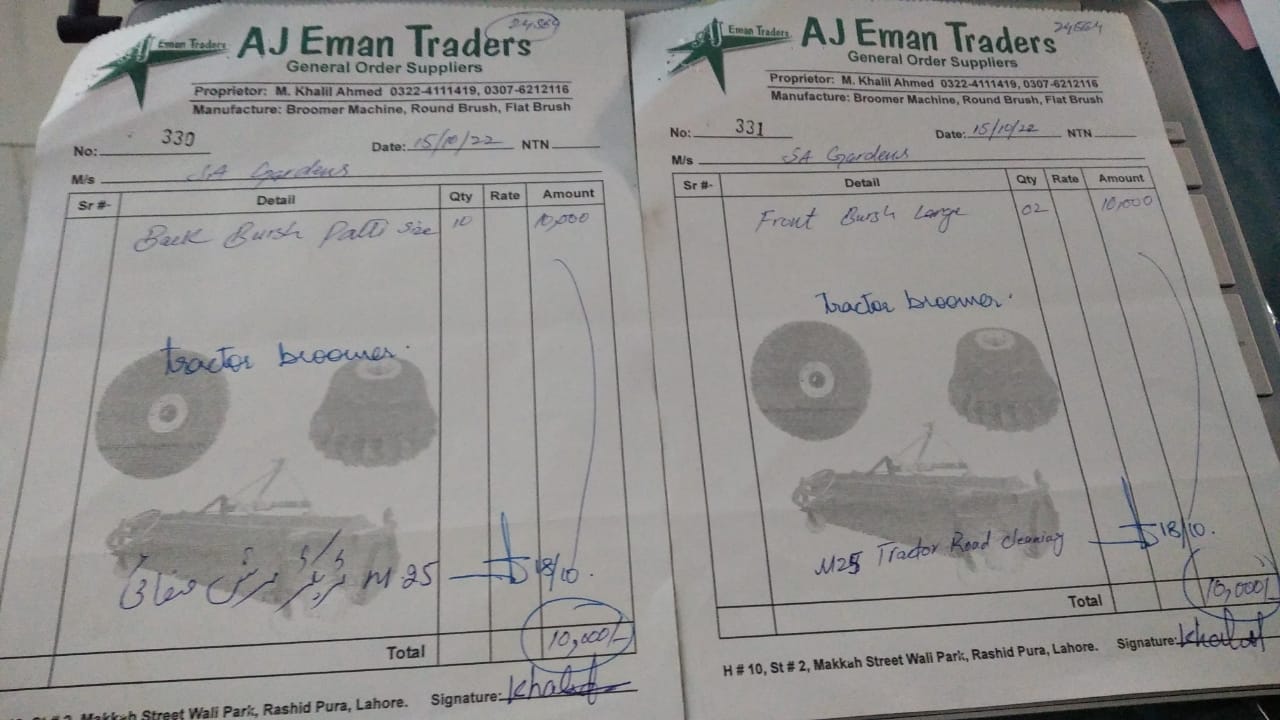 24564
Eman Traders
AJ Eman Traders
General Order Suppliers
Proprietor: M. Khalil Ahmed 0322-4111419, 0307-6212116
Manufacture: Broomer Machine, Round Brush, Flat Brush
No: 330 Date: 15/10/22 NTN
M/s SA Gardens
Sr #- Detail Qty Rate Amount
Back Bursh Patti Size 10 10,000
tractor broomer.
M 25
18/10.
Total 10,000/-
Signature: Khalil
Makkah Street Wali Park, Rashid Pura, Lahore.
24564
Eman Traders
AJ Eman Traders
General Order Suppliers
Proprietor: M. Khalil Ahmed 0322-4111419, 0307-6212116
Manufacture: Broomer Machine, Round Brush, Flat Brush
No: 331 Date: 15/10/22 NTN
M/s SA Gardens
Sr #- Detail Qty Rate Amount
Front Bursh Large 02 10,000
Tractor broomer.
M25 Tractor Road Cleaning
18/10.
Total 10,000/-
H # 10, St # 2, Makkah Street Wali Park, Rashid Pura, Lahore. Signature: Khalil